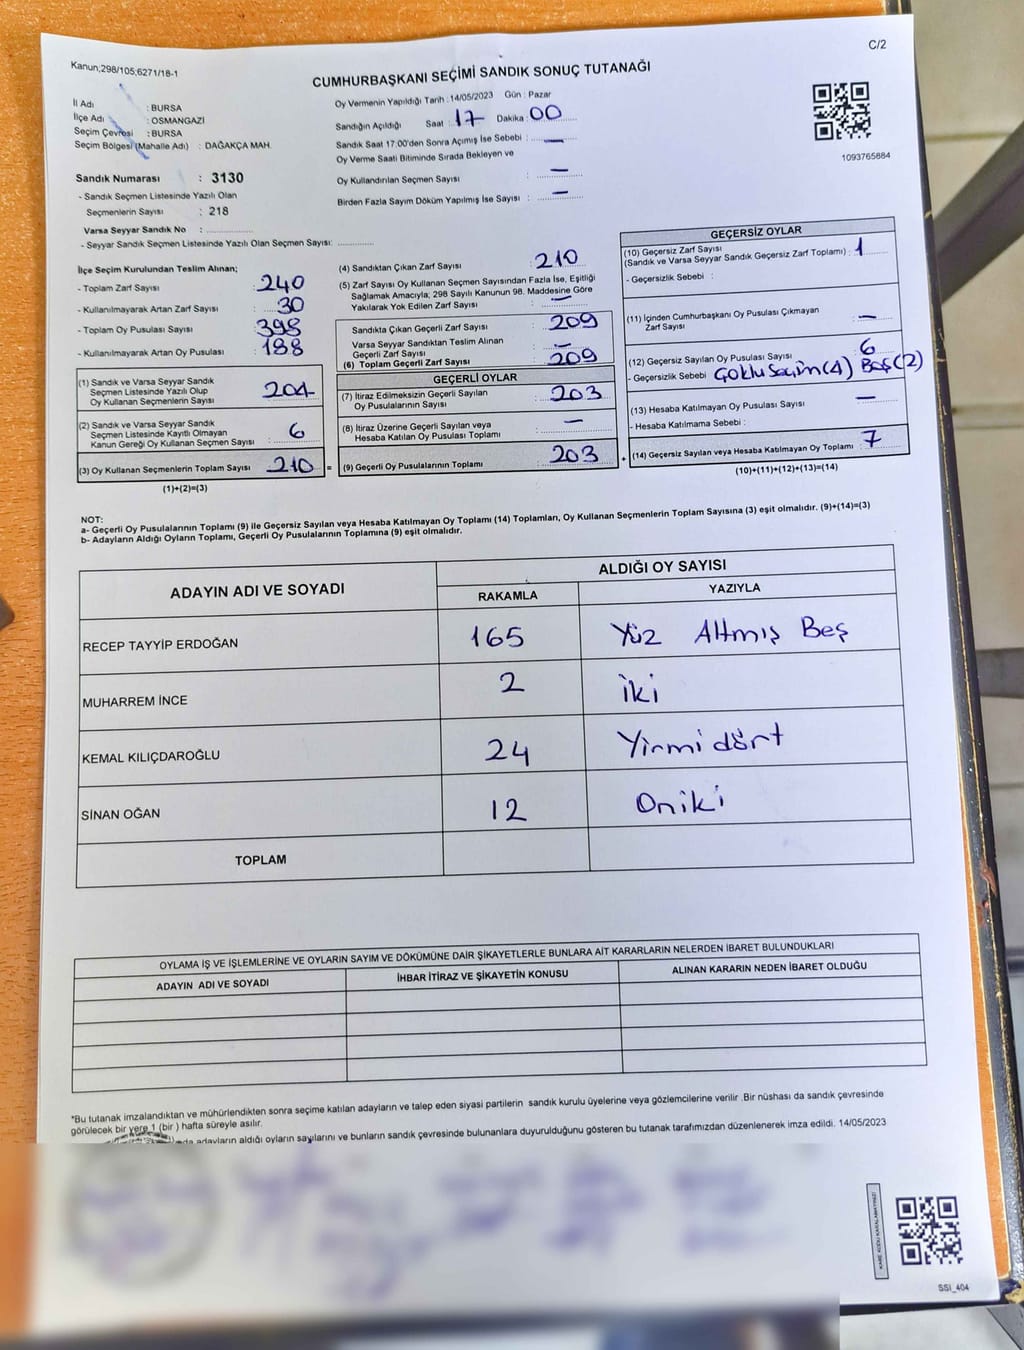 Kanun;298/105;6271/18-1
C/2
CUMHURBAŞKANI SEÇİMİ SANDIK SONUÇ TUTANAĞI
İl Adı : BURSA
İlçe Adı : OSMANGAZİ
Seçim Çevresi : BURSA
Seçim Bölgesi (Mahalle Adı) : DAĞAKÇA MAH.
Sandık Numarası : 3130
- Sandık Seçmen Listesinde Yazılı Olan
Seçmenlerin Sayısı : 218
Varsa Seyyar Sandık No :
- Seyyar Sandık Seçmen Listesinde Yazılı Olan Seçmen Sayısı:
Oy Vermenin Yapıldığı Tarih : 14/05/2023 Gün : Pazar
Sandığın Açıldığı Saat : 17 Dakika : 00
Sandık Saat 17.00'den Sonra Açımış İse Sebebi : —
Oy Verme Saati Bitiminde Sırada Bekleyen ve
Oy Kullandırılan Seçmen Sayısı : —
Birden Fazla Sayım Döküm Yapılmış İse Sayısı : —
1093765884
İlçe Seçim Kurulundan Teslim Alınan;
- Toplam Zarf Sayısı : 240
- Kullanılmayarak Artan Zarf Sayısı : 30
- Toplam Oy Pusulası Sayısı : 398
- Kullanılmayarak Artan Oy Pusulası : 188
(1) Sandık ve Varsa Seyyar Sandık
Seçmen Listesinde Yazılı Olup
Oy Kullanan Seçmenlerin Sayısı : 204
(2) Sandık ve Varsa Seyyar Sandık
Seçmen Listesinde Kayıtlı Olmayan
Kanun Gereği Oy Kullanan Seçmen Sayısı : 6
(3) Oy Kullanan Seçmenlerin Toplam Sayısı : 210 =
(1)+(2)=(3)
(4) Sandıktan Çıkan Zarf Sayısı : 210
(5) Zarf Sayısı Oy Kullanan Seçmen Sayısından Fazla İse, Eşitliği
Sağlamak Amacıyla; 298 Sayılı Kanunun 98. Maddesine Göre
Yakılarak Yok Edilen Zarf Sayısı : —
Sandıkta Çıkan Geçerli Zarf Sayısı : 209
Varsa Seyyar Sandıktan Teslim Alınan
Geçerli Zarf Sayısı : —
(6) Toplam Geçerli Zarf Sayısı : 209
GEÇERLİ OYLAR
(7) İtiraz Edilmeksizin Geçerli Sayılan
Oy Pusulalarının Sayısı : 203
(8) İtiraz Üzerine Geçerli Sayılan veya
Hesaba Katılan Oy Pusulası Toplamı : —
(9) Geçerli Oy Pusulalarının Toplamı : 203 +
GEÇERSİZ OYLAR
(10) Geçersiz Zarf Sayısı
(Sandık ve Varsa Seyyar Sandık Geçersiz Zarf Toplamı) : 1
- Geçersizlik Sebebi :
(11) İçinden Cumhurbaşkanı Oy Pusulası Çıkmayan
Zarf Sayısı : —
(12) Geçersiz Sayılan Oy Pusulası Sayısı : 6
- Geçersizlik Sebebi : Çoklu Seçim(4) Boş(2)
(13) Hesaba Katılmayan Oy Pusulası Sayısı : —
- Hesaba Katılmama Sebebi :
(14) Geçersiz Sayılan veya Hesaba Katılmayan Oy Toplamı : 7
(10)+(11)+(12)+(13)=(14)
NOT:
a- Geçerli Oy Pusulalarının Toplamı (9) ile Geçersiz Sayılan veya Hesaba Katılmayan Oy Toplamı (14) Toplamları, Oy Kullanan Seçmenlerin Toplam Sayısına (3) eşit olmalıdır. (9)+(14)=(3)
b- Adayların Aldığı Oyların Toplamı, Geçerli Oy Pusulalarının Toplamına (9) eşit olmalıdır.
ADAYIN ADI VE SOYADI
ALDIĞI OY SAYISI
RAKAMLA YAZIYLA
RECEP TAYYİP ERDOĞAN 165 Yüz Altmış Beş
MUHARREM İNCE 2 iki
KEMAL KILIÇDAROĞLU 24 Yirmi dört
SİNAN OĞAN 12 Oniki
TOPLAM
OYLAMA İŞ VE İŞLEMLERİNE VE OYLARIN SAYIM VE DÖKÜMÜNE DAİR ŞİKAYETLERLE BUNLARA AİT KARARLARIN NELERDEN İBARET BULUNDUKLARI
ADAYIN ADI VE SOYADI İHBAR İTİRAZ VE ŞİKAYETİN KONUSU ALINAN KARARIN NEDEN İBARET OLDUĞU
*Bu tutanak imzalandıktan ve mühürlendikten sonra seçime katılan adayların ve talep eden siyasi partilerin sandık kurulu üyelerine veya gözlemcilerine verilir .Bir nüshası da sandık çevresinde
görülecek bir yere 1 (bir ) hafta süreyle asılır.
adayların aldığı oyların sayılarını ve bunların sandık çevresinde bulunanlara duyurulduğunu gösteren bu tutanak tarafımızdan düzenlenerek imza edildi. 14/05/2023
KARE KODU KARALAMAYINIZ!
SSI_404